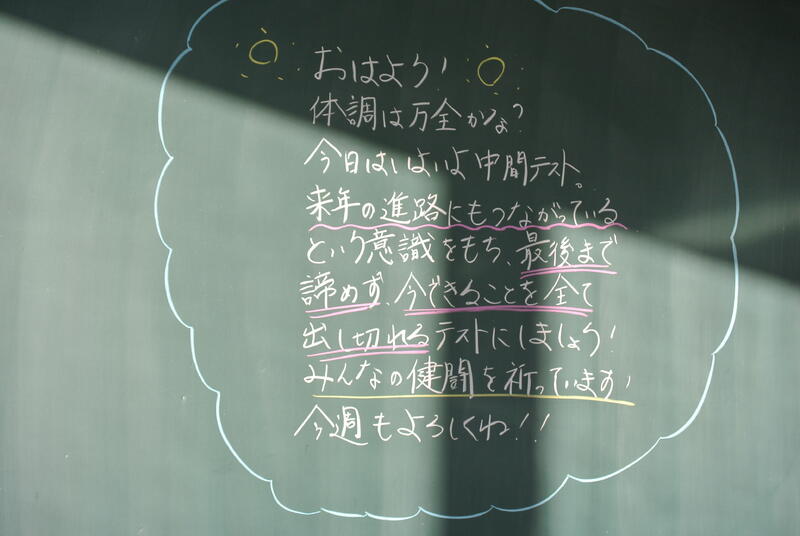 おはよう!
体調は万全かな?
今日はいよいよ中間テスト。
来年の進路にもつながっている
という意識をもち、最後まで
諦めず、今できることを全て
出し切れるテストにしましょう!
みんなの健闘を祈っています!
今週もよろしくね!!